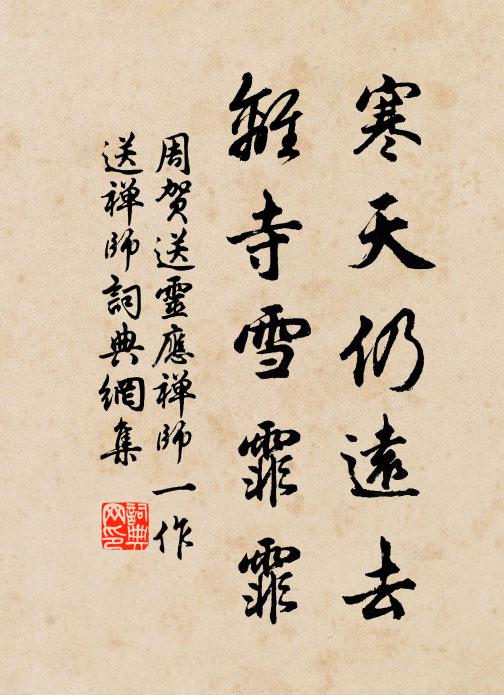 寒天仍遠去
離寺雪霏霏
周賀送靈應禪師一作
送禪師詞典網集
詞典
网印